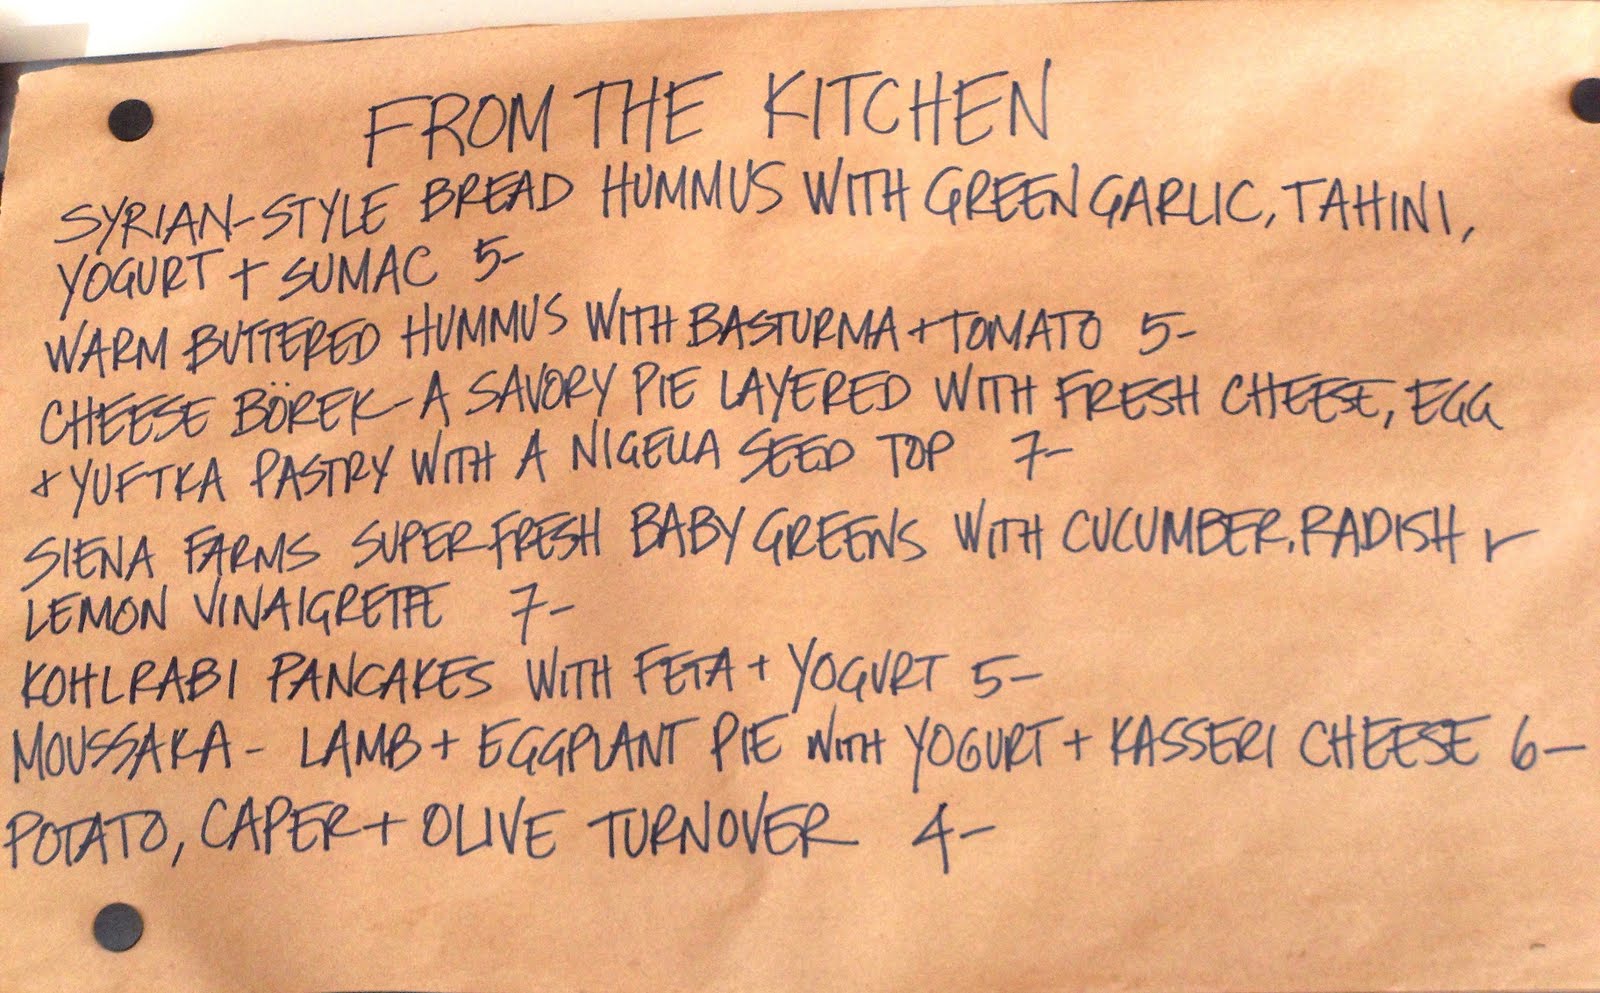 FROM THE KITCHEN
SYRIAN-STYLE BREAD HUMMUS WITH GREEN GARLIC, TAHINI,
YOGURT + SUMAC 5-
WARM BUTTERED HUMMUS WITH BASTURMA + TOMATO 5-
CHEESE BÖREK - A SAVORY PIE LAYERED WITH FRESH CHEESE, EGG
+ YUFTKA PASTRY WITH A NIGELLA SEED TOP 7-
SIENA FARMS SUPER FRESH BABY GREENS WITH CUCUMBER, RADISH +
LEMON VINAIGRETTE 7-
KOHLRABI PANCAKES WITH FETA + YOGURT 5-
MOUSSAKA - LAMB + EGGPLANT PIE WITH YOGURT + KASSERI CHEESE 6-
POTATO, CAPER + OLIVE TURNOVER 4-